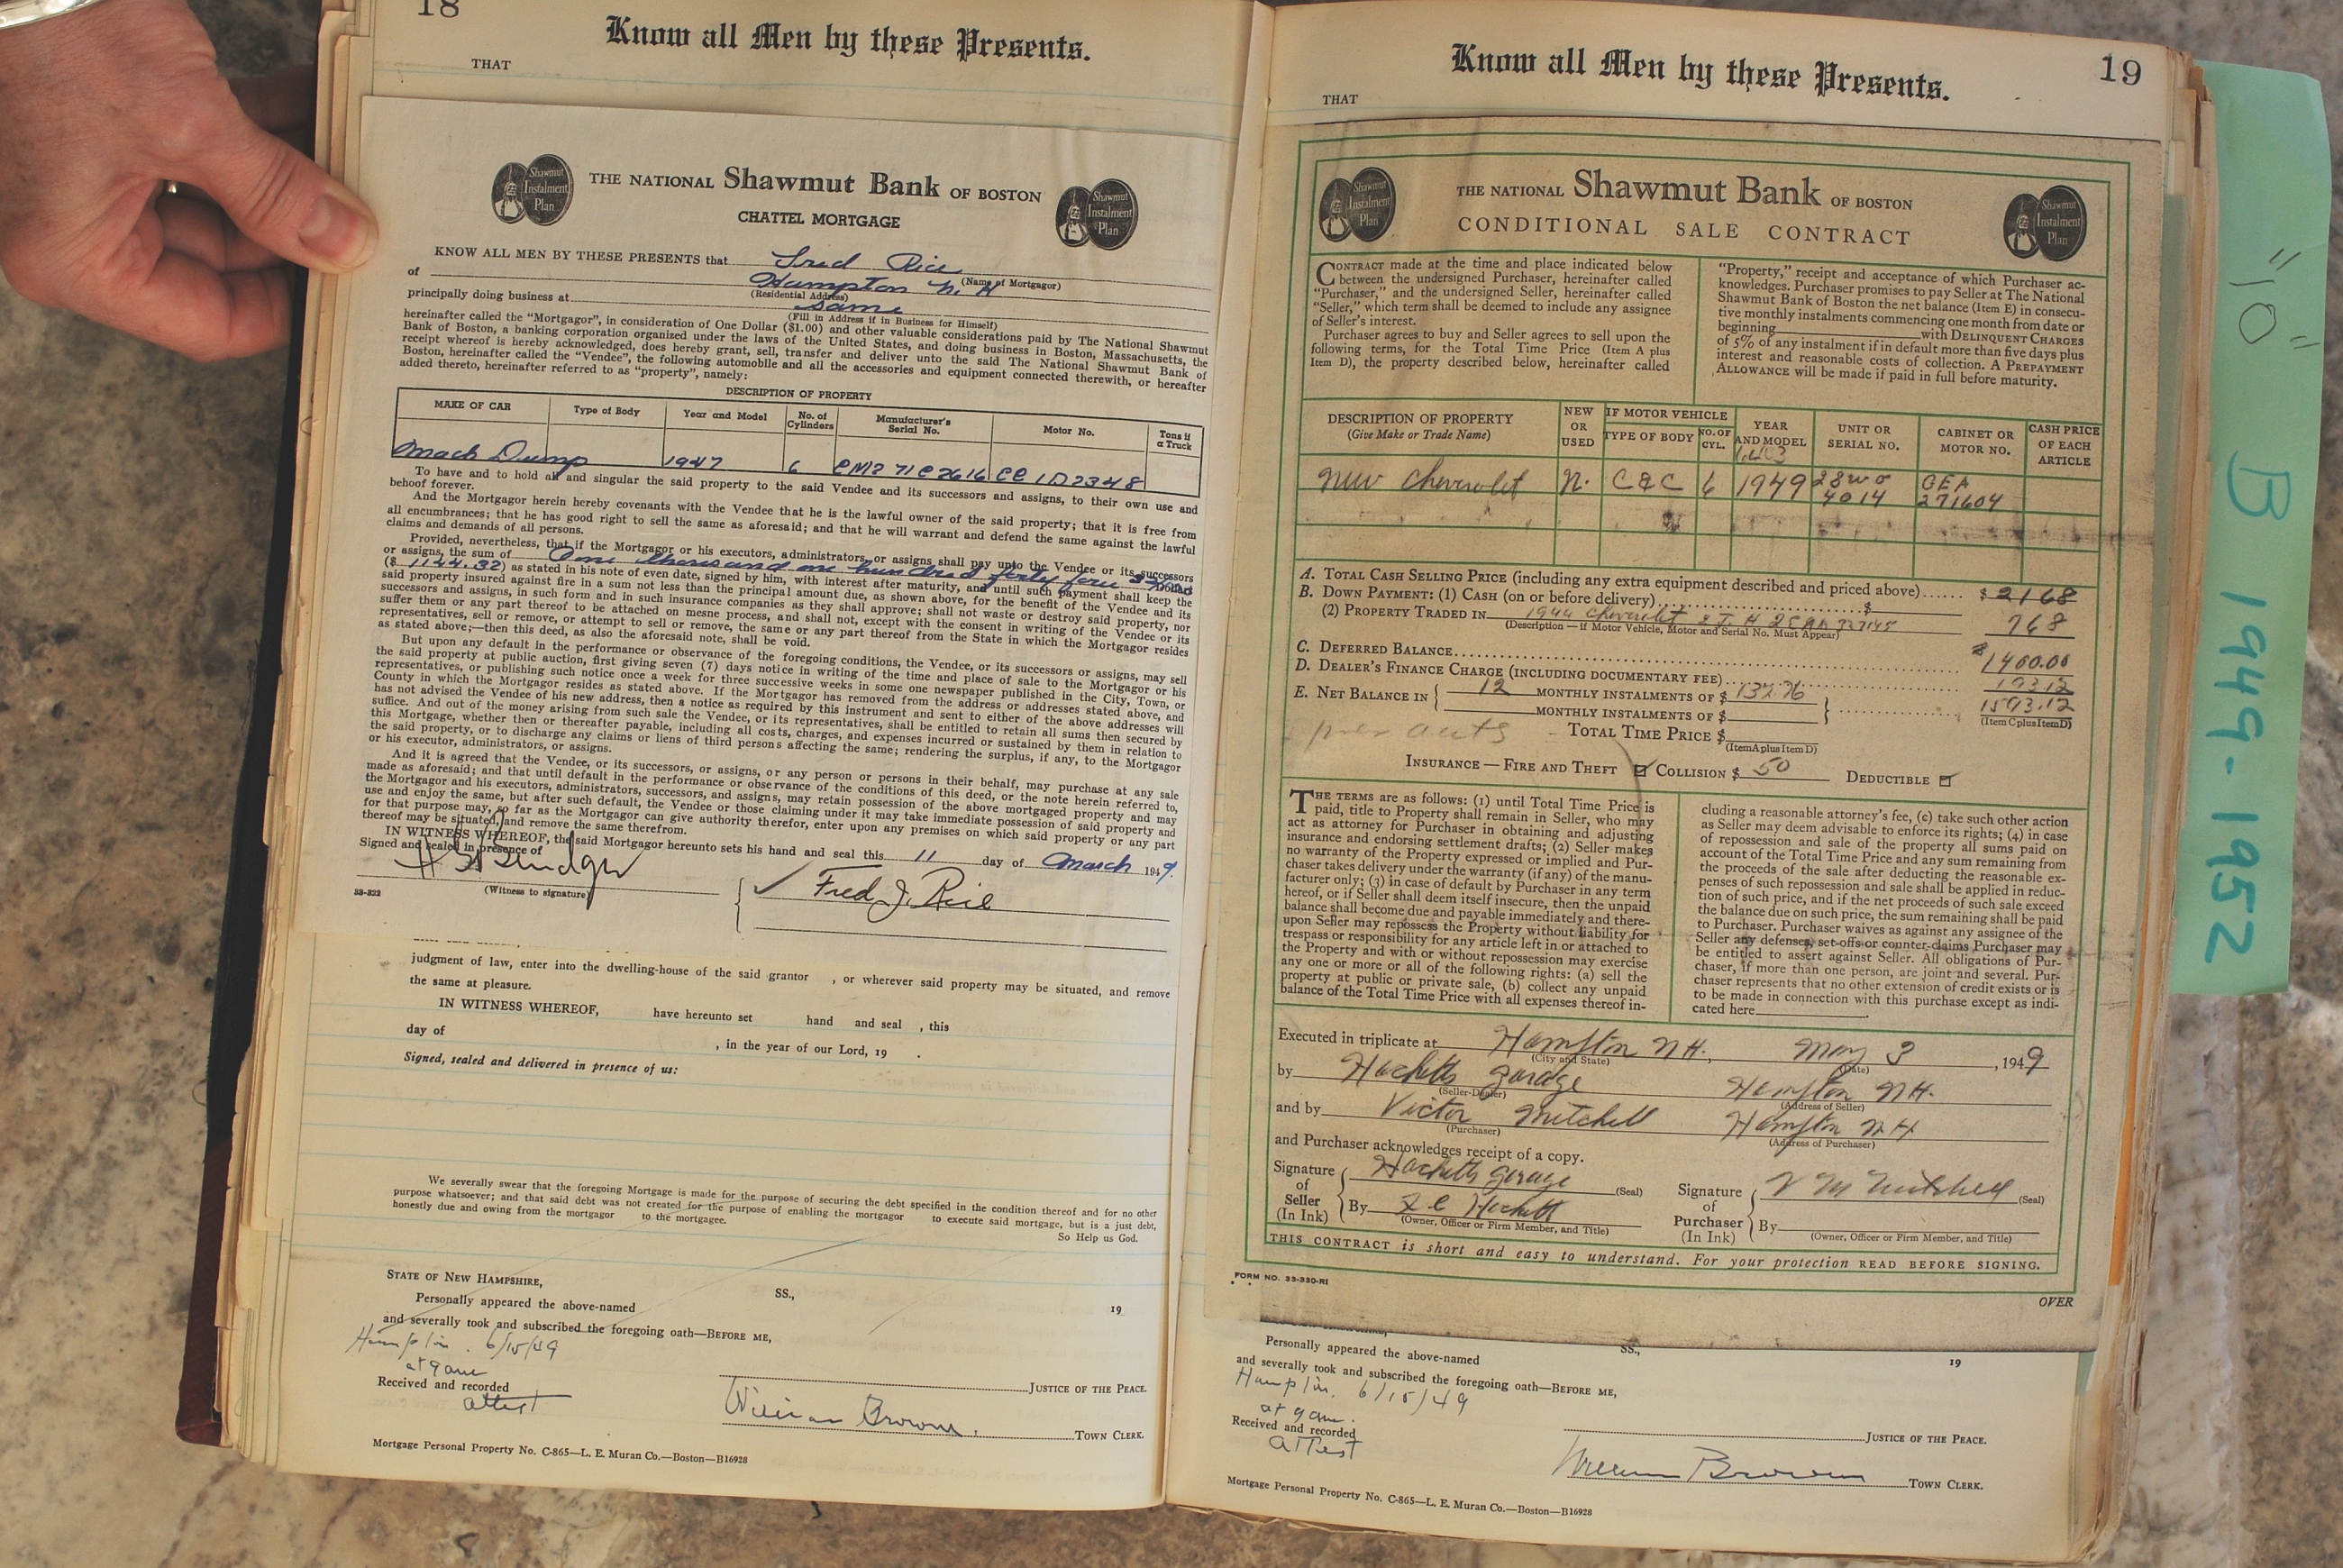 18
Know all Men by these Presents.
THAT
Shawmut Instalment Plan
THE NATIONAL Shawmut Bank OF BOSTON
Shawmut Instalment Plan
CHATTEL MORTGAGE
KNOW ALL MEN BY THESE PRESENTS that Fred Rice
(Name of Mortgagor)
of Hampton N. H
(Residential Address)
principally doing business at same
(Fill in Address if in Business for Himself)
hereinafter called the “Mortgagor”, in consideration of One Dollar ($1.00) and other valuable considerations paid by The National Shawmut
Bank of Boston, a banking corporation organized under the laws of the United States, and doing business in Boston, Massachusetts, the
receipt whereof is hereby acknowledged, does hereby grant, sell, transfer and deliver unto the said The National Shawmut Bank of
Boston, hereinafter called the “Vendee”, the following automobile and all the accessories and equipment connected therewith, or hereafter
added thereto, hereinafter referred to as “property”, namely:
DESCRIPTION OF PROPERTY
MAKE OF CAR Type of Body Year and Model No. of Cylinders Manufacturer's Serial No. Motor No. Tons if a Truck
Mack Dump 1947 6 2616
To have and to hold all and singular the said property to the said Vendee and its successors and assigns, to their own use and
behoof forever.
And the Mortgagor herein hereby covenants with the Vendee that he is the lawful owner of the said property; that it is free from
all encumbrances; that he has good right to sell the same as aforesaid; and that he will warrant and defend the same against the lawful
claims and demands of all persons.
Provided, nevertheless, that if the Mortgagor or his executors, administrators, or assigns shall pay unto the Vendee or its successors
or assigns, the sum of One thousand one hundred forty four 32/100
($ 1144.32) as stated in his note of even date, signed by him, with interest after maturity, and until such payment shall keep the
said property insured against fire in a sum not less than the principal amount due, as shown above, for the benefit of the Vendee and its
successors and assigns, in such form and in such insurance companies as they shall approve; shall not waste or destroy said property, nor
suffer them or any part thereof to be attached on mesne process, and shall not, except with the consent in writing of the Vendee or its
representatives, sell or remove, or attempt to sell or remove, the same or any part thereof from the State in which the Mortgagor resides
as stated above;—then this deed, as also the aforesaid note, shall be void.
But upon any default in the performance or observance of the foregoing conditions, the Vendee, or its successors or assigns, may sell
the said property at public auction, first giving seven (7) days notice in writing of the time and place of sale to the Mortgagor or his
representatives, or publishing such notice once a week for three successive weeks in some one newspaper published in the City, Town, or
County in which the Mortgagor resides as stated above. If the Mortgagor has removed from the address or addresses stated above, and
has not advised the Vendee of his new address, then a notice as required by this instrument and sent to either of the above addresses will
suffice. And out of the money arising from such sale the Vendee, or its representatives, shall be entitled to retain all sums then secured by
this Mortgage, whether then or thereafter payable, including all costs, charges, and expenses incurred or sustained by them in relation to
the said property, or to discharge any claims or liens of third persons affecting the same; rendering the surplus, if any, to the Mortgagor
or his executor, administrators, or assigns.
And it is agreed that the Vendee, or its successors, or assigns, or any person or persons in their behalf, may purchase at any sale
made as aforesaid; and that until default in the performance or observance of the conditions of this deed, or the note herein referred to,
the Mortgagor and his executors, administrators, successors, and assigns, may retain possession of the above mortgaged property and may
use and enjoy the same, but after such default, the Vendee or those claiming under it may take immediate possession of said property and
for that purpose may, so far as the Mortgagor can give authority therefor, enter upon any premises on which said property or any part
thereof may be situated, and remove the same therefrom.
IN WITNESS WHEREOF, the said Mortgagor hereunto sets his hand and seal this 11 day of March 1949.
Signed and sealed in presence of
(Witness to signature)
33-322
Fred J. Rice
judgment of law, enter into the dwelling-house of the said grantor , or wherever said property may be situated, and remove
the same at pleasure.
IN WITNESS WHEREOF, have hereunto set hand and seal , this
day of , in the year of our Lord, 19 .
Signed, sealed and delivered in presence of us:
We severally swear that the foregoing Mortgage is made for the purpose of securing the debt specified in the condition thereof and for no other
purpose whatsoever; and that said debt was not created for the purpose of enabling the mortgagor to execute said mortgage, but is a just debt,
honestly due and owing from the mortgagor to the mortgagee.
So Help us God.
STATE OF NEW HAMPSHIRE,
SS.,
Personally appeared the above-named 19
and severally took and subscribed the foregoing oath—BEFORE ME,
Hampton. 6/15/49
at 9 am
Received and recorded
JUSTICE OF THE PEACE.
attest
William Brown.
TOWN CLERK.
Mortgage Personal Property No. C-865—L. E. Muran Co.—Boston—B16928
19
Know all Men by these Presents.
THAT
Shawmut Instalment Plan
THE NATIONAL Shawmut Bank OF BOSTON
Shawmut Instalment Plan
CONDITIONAL SALE CONTRACT
CONTRACT made at the time and place indicated below
between the undersigned Purchaser, hereinafter called
“Purchaser,” and the undersigned Seller, hereinafter called
“Seller,” which term shall be deemed to include any assignee
of Seller's interest.
Purchaser agrees to buy and Seller agrees to sell upon the
following terms, for the Total Time Price (Item A plus
Item D), the property described below, hereinafter called
“Property,” receipt and acceptance of which Purchaser ac-
knowledges. Purchaser promises to pay Seller at The National
Shawmut Bank of Boston the net balance (Item E) in consecu-
tive monthly instalments commencing one month from date or
beginning with DELINQUENT CHARGES
of 5% of any instalment if in default more than five days plus
interest and reasonable costs of collection. A PREPAYMENT
ALLOWANCE will be made if paid in full before maturity.
DESCRIPTION OF PROPERTY (Give Make or Trade Name) NEW OR USED IF MOTOR VEHICLE TYPE OF BODY NO. OF CYL. YEAR AND MODEL UNIT OR SERIAL NO. CABINET OR MOTOR NO. CASH PRICE OF EACH ARTICLE
New Chevrolet N. C & C 6 1949 4014 GEA 271604
A. TOTAL CASH SELLING PRICE (including any extra equipment described and priced above)...... $2168
B. DOWN PAYMENT: (1) CASH (on or before delivery) $
(2) PROPERTY TRADED IN 1944 Chevrolet 768
(Description — if Motor Vehicle, Motor and Serial No. Must Appear)
C. DEFERRED BALANCE $1400.00
D. DEALER'S FINANCE CHARGE (INCLUDING DOCUMENTARY FEE) 193.12
E. NET BALANCE IN 12 MONTHLY INSTALMENTS OF $ 132.76 1593.12
MONTHLY INSTALMENTS OF $
(Item C plus Item D)
TOTAL TIME PRICE $
(Item A plus Item D)
INSURANCE — FIRE AND THEFT ☑ COLLISION $ 50 DEDUCTIBLE ☑
THE TERMS are as follows: (1) until Total Time Price is
paid, title to Property shall remain in Seller, who may
act as attorney for Purchaser in obtaining and adjusting
insurance and endorsing settlement drafts; (2) Seller makes
no warranty of the Property expressed or implied and Pur-
chaser takes delivery under the warranty (if any) of the manu-
facturer only; (3) in case of default by Purchaser in any term
hereof, or if Seller shall deem itself insecure, then the unpaid
balance shall become due and payable immediately and there-
upon Seller may repossess the Property without liability for
trespass or responsibility for any article left in or attached to
the Property and with or without repossession may exercise
any one or more or all of the following rights: (a) sell the
property at public or private sale, (b) collect any unpaid
balance of the Total Time Price with all expenses thereof in-
cluding a reasonable attorney's fee, (c) take such other action
as Seller may deem advisable to enforce its rights; (4) in case
of repossession and sale of the property all sums paid on
account of the Total Time Price and any sum remaining from
the proceeds of the sale after deducting the reasonable ex-
penses of such repossession and sale shall be applied in reduc-
tion of such price, and if the net proceeds of such sale exceed
the balance due on such price, the sum remaining shall be paid
to Purchaser. Purchaser waives as against any assignee of the
Seller any defenses, set-offs or counter-claims Purchaser may
be entitled to assert against Seller. All obligations of Pur-
chaser, if more than one person, are joint and several. Pur-
chaser represents that no other extension of credit exists or is
to be made in connection with this purchase except as indi-
cated here
Executed in triplicate at Hampton N.H., May 3, 1949
(City and State) (Date)
by Hacketts Garage Hampton N.H.
(Seller-Dealer) (Address of Seller)
and by Victor Mitchell Hampton N H
(Purchaser) (Address of Purchaser)
and Purchaser acknowledges receipt of a copy.
Signature of Seller (In Ink) Hacketts Garage (Seal)
By Hackett
(Owner, Officer or Firm Member, and Title)
Signature of Purchaser (In Ink) V M Mitchell (Seal)
By
(Owner, Officer or Firm Member, and Title)
THIS CONTRACT is short and easy to understand. For your protection READ BEFORE SIGNING.
FORM NO. 33-330-R1
OVER
Personally appeared the above-named SS., 19
and severally took and subscribed the foregoing oath—BEFORE ME,
Hampton. 6/15/49
at 9 am.
Received and recorded
JUSTICE OF THE PEACE.
attest
William Brown
TOWN CLERK.
Mortgage Personal Property No. C-865—L. E. Muran Co.—Boston—B16928
"10"
B 1949-1952